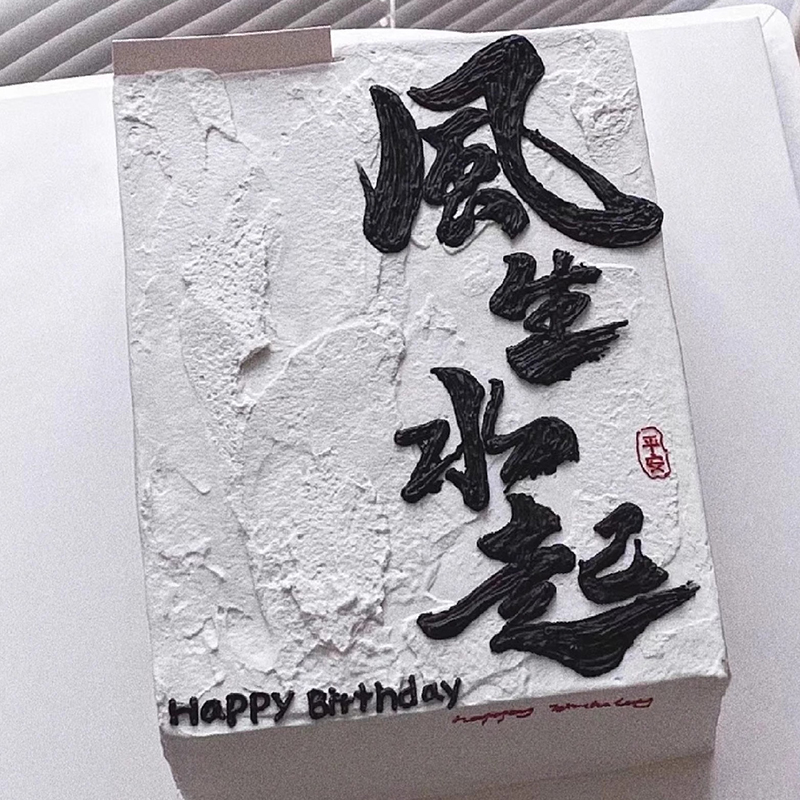 風生水起
平安
Happy Birthday
Happy Birthday